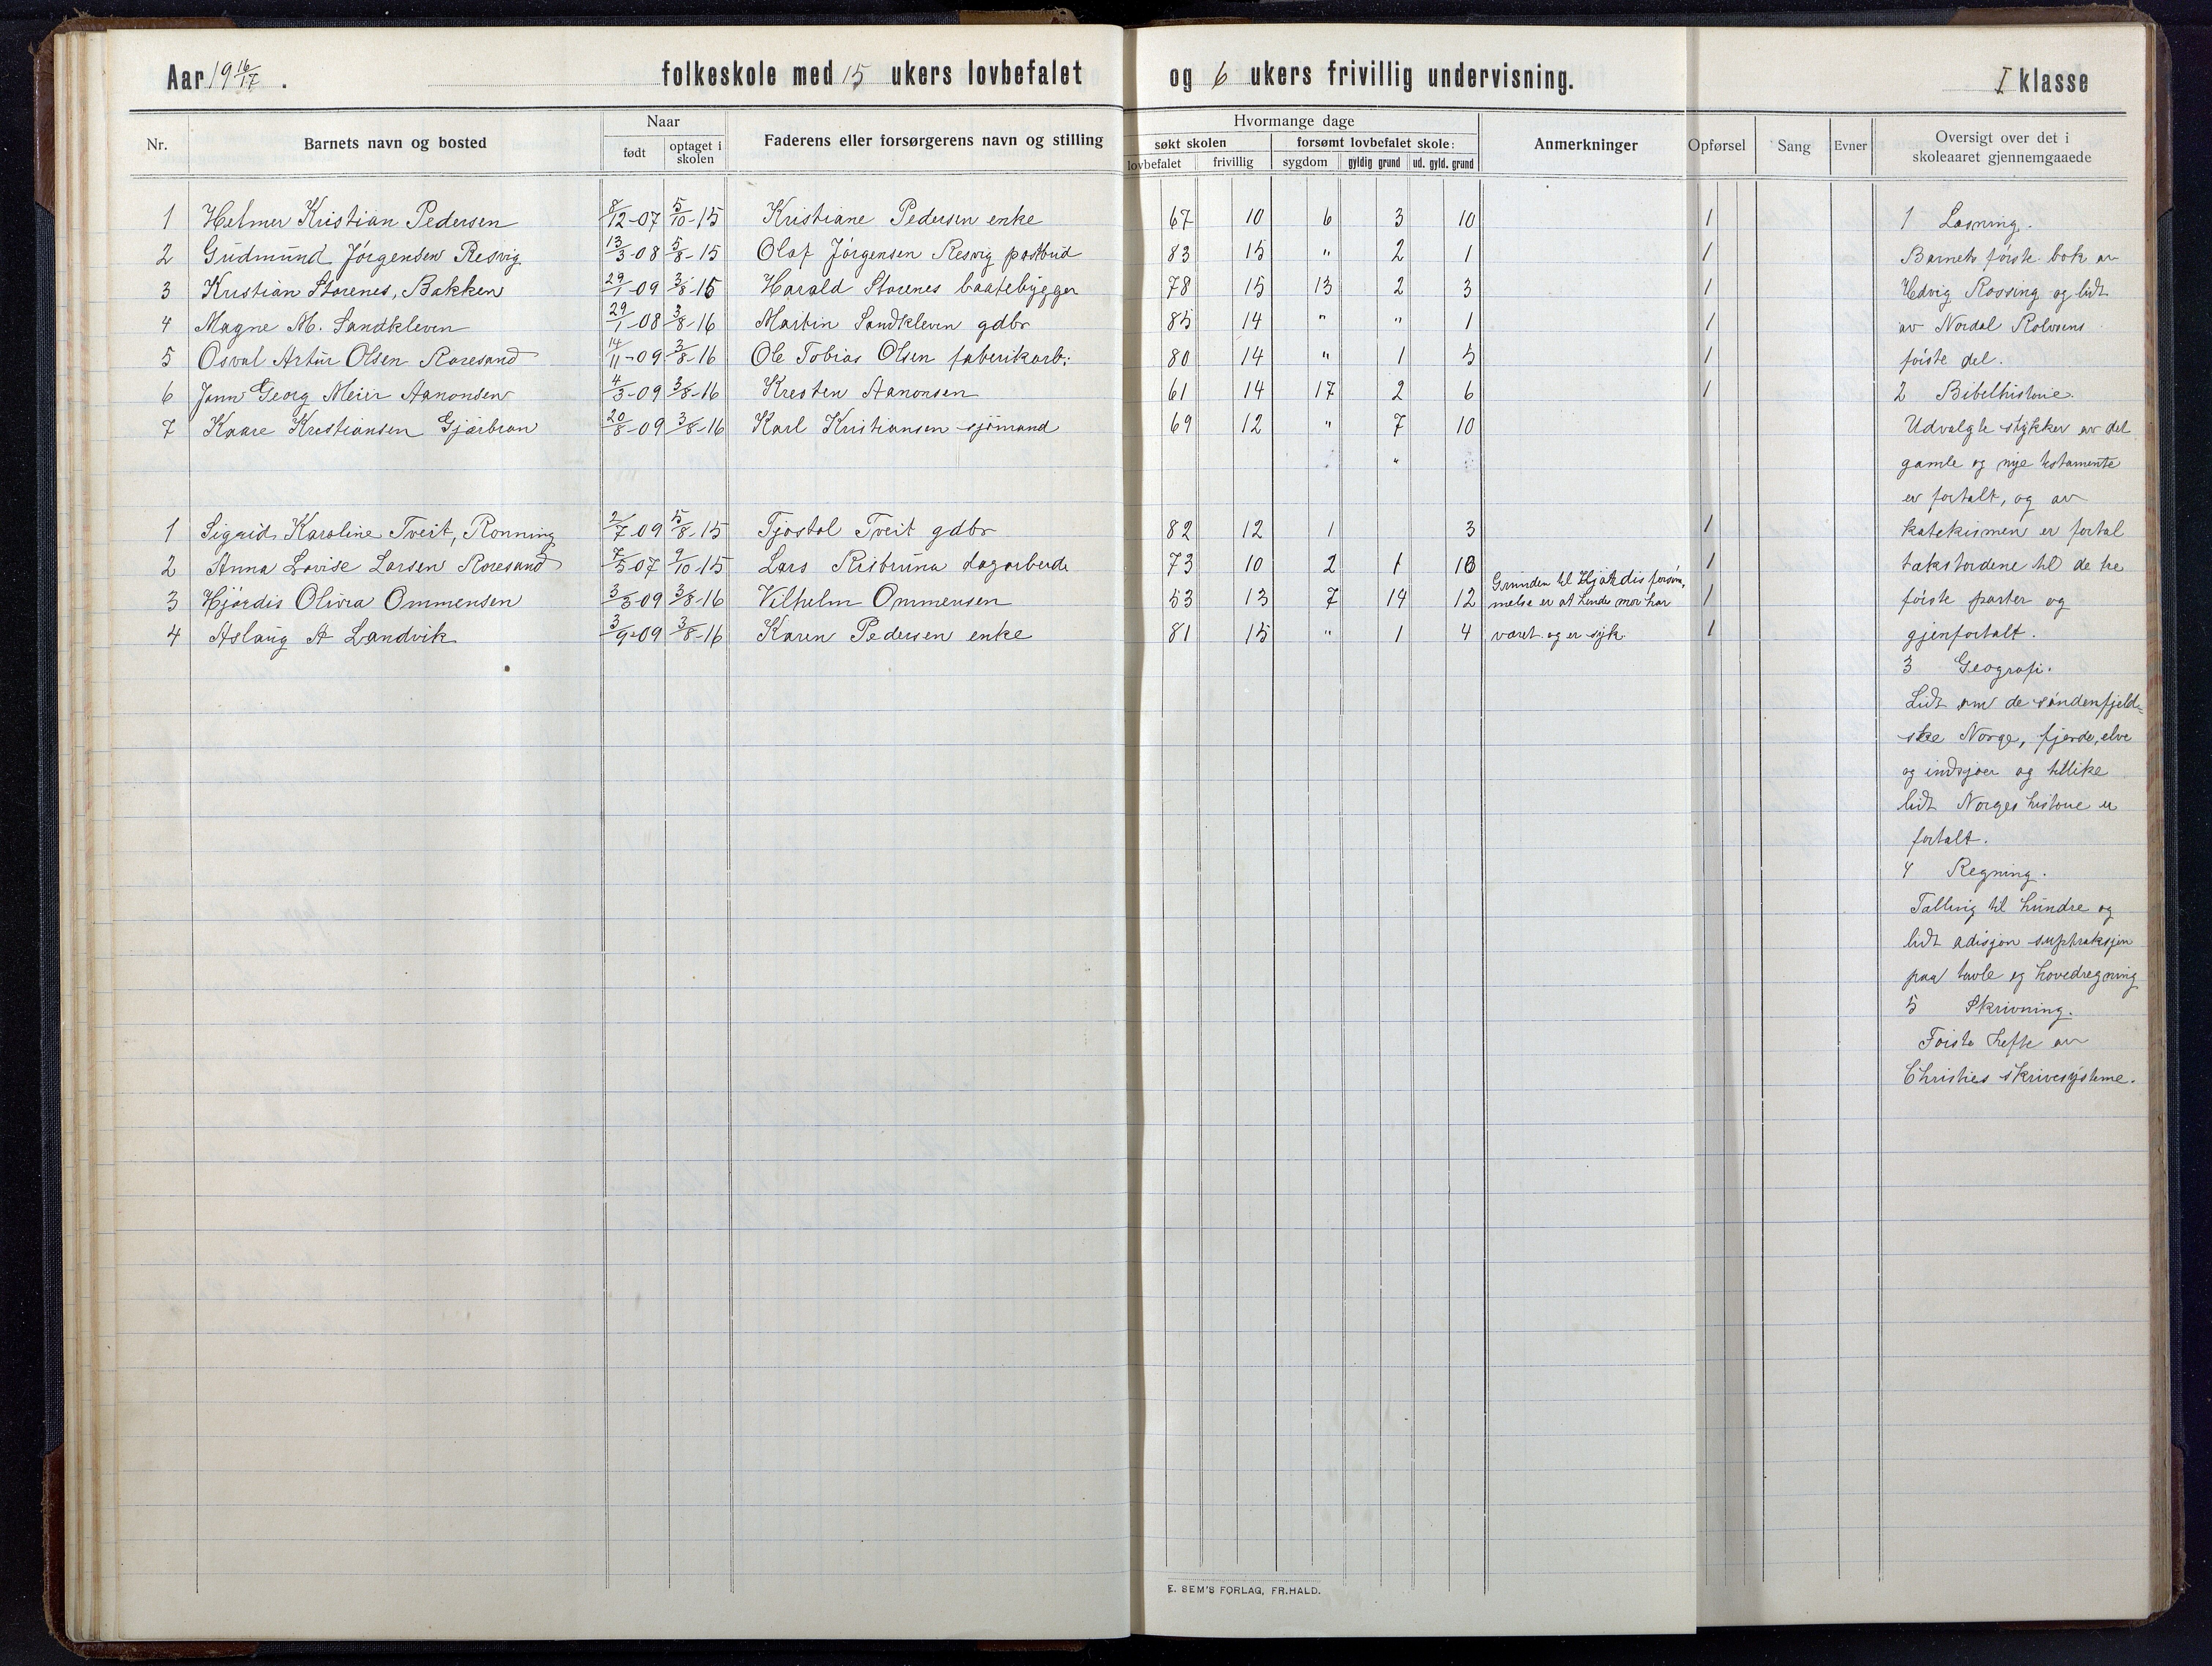 Aar 19 16/17 . folkeskole med 15 ukers lovbefalet og 6 ukers frivillig undervisning. I klasse
Nr. Barnets navn og bosted Naar Faderens eller forsørgerens navn og stilling Hvormange dage Anmerkninger Opførsel Sang Evner Oversigt over det i skoleaaret gjennemgaaede
født optaget i skolen søkt skolen forsømt lovbefalet skole:
lovbefalet frivillig sygdom gyldig grund ud. gyld. grund
1 Helmer Kristian Pedersen 8/12-07 5/10-15 Kristiane Pedersen enke 67 10 6 3 10 1
2 Gudmund Jörgensen Resvig 13/3-08 5/8-15 Olaf Jörgensen Resvig postbud 83 15 " 2 1 1
3 Kristian Storenes, Bakken 29/1-09 3/8-16 Harald Storenes baatebygger 78 15 13 2 3 1
4 Magne M. Sandkleven 29/1-08 3/8-16 Martin Sandkleven gdbr 85 14 " " 1 1
5 Osval Artur Olsen Roresand 14/11-09 3/8-16 Ole Tobias Olsen faberikarb: 80 14 " 1 5 1
6 Georg Meier Aanonsen 4/3-09 3/8-16 Kresten Aanonsen 61 14 17 2 6 1
7 Kaare Kristiansen 20/8-09 3/8-16 Karl Kristiansen sjömand 69 12 " 7 10
"
1 Sigrid Karoline Tveit, Ronning 2/7-09 5/8-15 Tjostol Tveit gdbr 82 12 1 3 1
2 Anna Lovise Larsen Roresand 7/5-07 9/10-15 Lars dagarbeide 73 10 2 1 10 1
3 Hjördis Olivia Ommensen 3/3-09 3/8-16 Vilhelm Ommensen 53 13 7 14 12 1
4 Aslaug A Landvik 3/9-09 3/8-16 Karen Pedersen enke 81 15 " 1 4 1
Grunden til Hjördis forsöm,
melse er at hendes mor har
været og er syk.
1 Læsning.
Barnets förste bok av
Hedvig Rossing og lidt
av Nordal Rolvsens
förste del.
2 Bibelhistorie.
Udvalgte stykker av det
gamle og nye testamente
er fortalt, og av
katekismen er fortal
takstordene til de tre
förste parter og
gjenfortalt.
3 Geografi.
Lidt om de söndenfjeld=
ske Norge, fjorde, elve
og indsjøer og tillike
lidt Norges historie er
fortalt.
4 Regning.
Tælling til hundre og
lidt adisjon suptraksjon
paa tavle og hovedregning
5 Skrivning.
Förste hefte av
Christies skrivesysteme.
E. SEM'S FORLAG, FR.HALD.